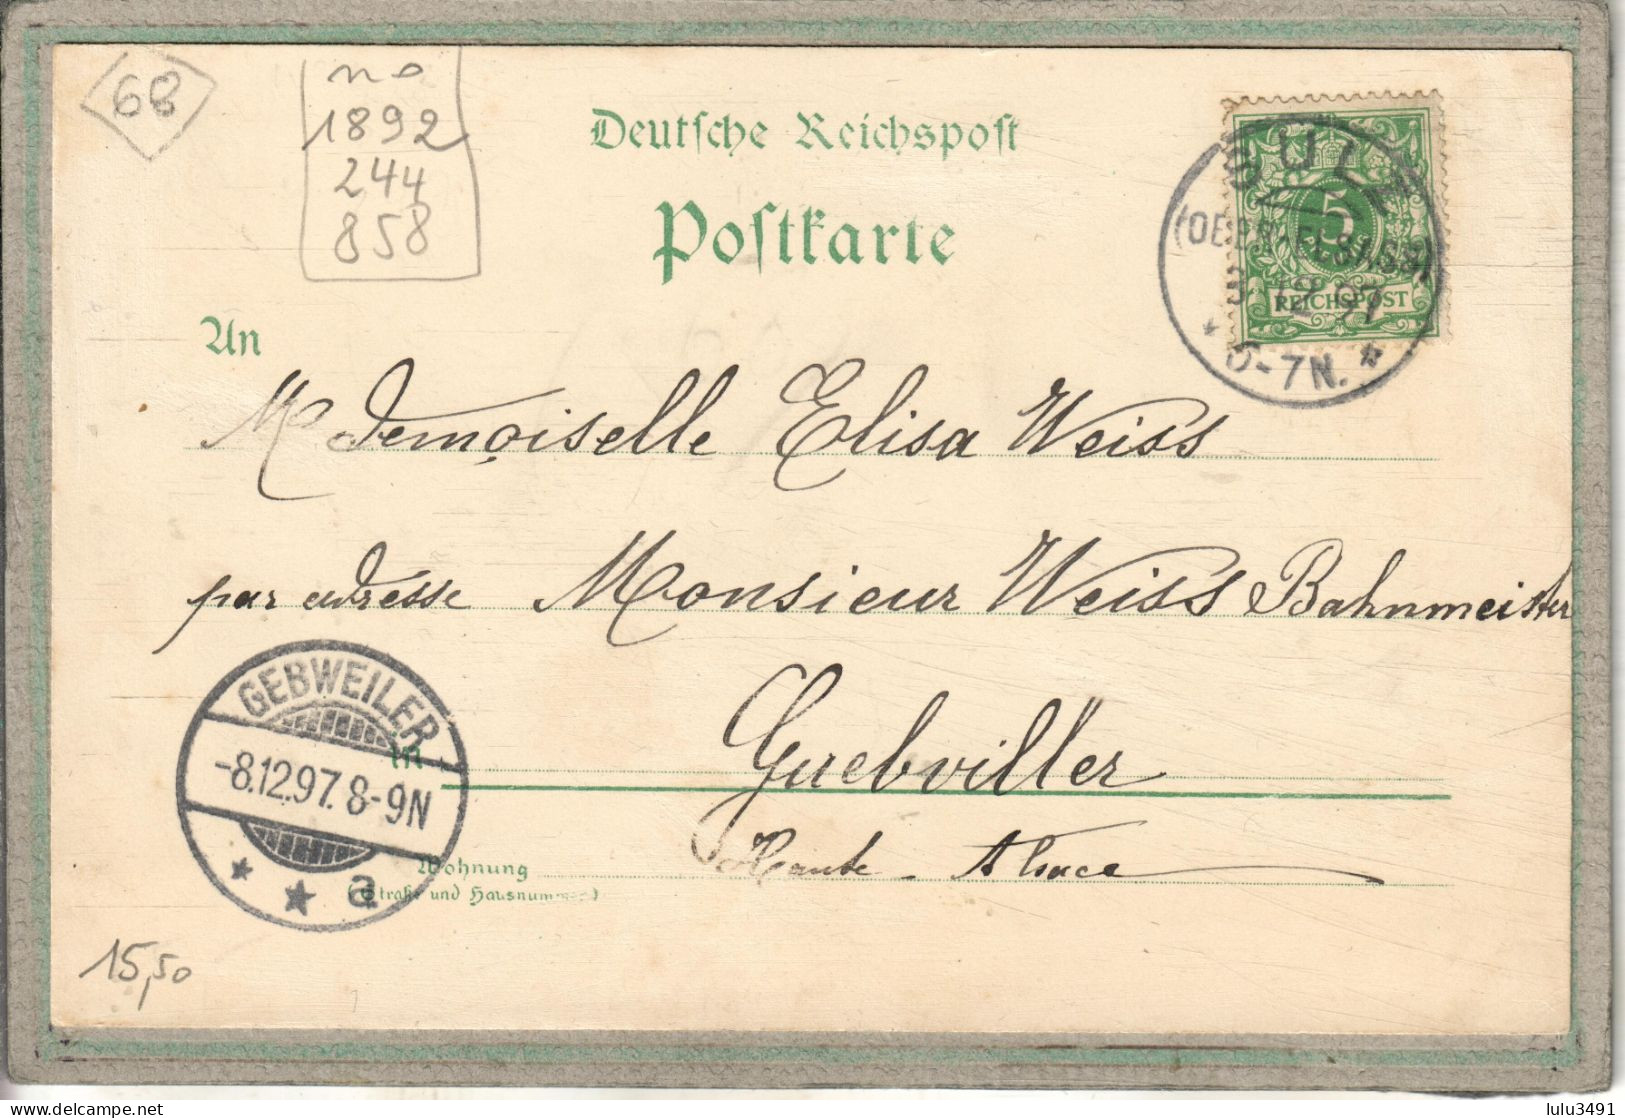 68
no
1892
244
858
Deutsche Reichspost
Postkarte
SULZ
(OBER-ELSASS)
8 12 97
* 6-7N. *
5
REICHSPOST
An
Mademoiselle Elisa Weiss
par adresse Monsieur Weiss Bahnmeister
GEBWEILER
-8.12.97. 8-9N
a
in Guebviller
Haute-Alsace
Wohnung
(Straße und Hausnummer)
15,50
lulu3491